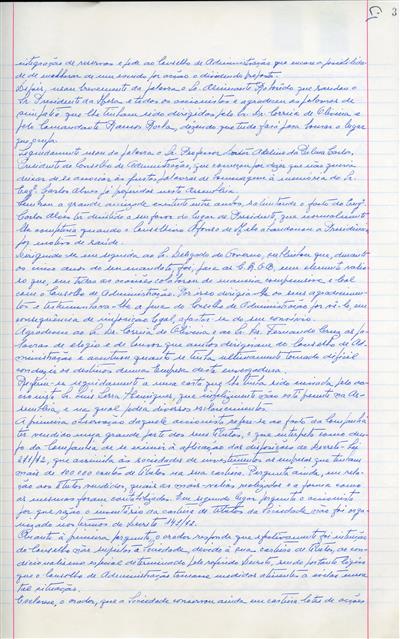 3
integração de reservas e pede ao Conselho de Administração que encare a possibilida-
de de melhorar de um escudo por acção o dividendo proposto.
Depois, usou novamente da palavra o Sr. Almirante que saudou o
Sr. Presidente da Mesa e todos os accionistas e agradeceu as palavras de
simpatia que lhe tinham sido dirigidas pelo Sr. Correia de Oliveira e
pelo Comandante Ramos Rocha, dizendo que tudo fará para honrar o lugar
que ocupa.
Seguidamente usou da palavra o Sr. Professor Doutor Adelino da Palma Carlos,
Presidente do Conselho de Administração, que começou por dizer que não queria
deixar de se associar às justas palavras de homenagem à memória do Sr.
Engº. Carlos Alves já proferidas nesta Assembleia.
a grande amizade existente entre ambos, salientando o facto do Engº.
Carlos Alves ter desistido a seu favor do lugar de Presidente, que normalmente
lhe competia quando o Conselheiro Afonso de Mello abandonou a Presidência
por motivo de saúde.
Dirigindo-se em seguida ao Sr. Delegado do Governo, sublinhou que, durante
os cinco anos do seu mandato, foi, para a C.R.G.E., um elemento valio-
so que, em todas as ocasiões colaborou de maneira compreensiva e leal
com o Conselho de Administração. Por isso dirigia-lhe os seus agradecimen-
tos e testemunhava-lhe a pena do Conselho de Administração por vê-lo, em
consequência de imposição legal, afastar-se do seu convívio.
Agradeceu ao Sr. Dr. Correia de Oliveira e ao Sr. Dr. Fernando Cruz as pa-
lavras de elogio e de louvor que ambos dirigiram ao Conselho de Ad-
ministração e acentuou quanto se tinha ultimamente tornado difícil
conduzir os destinos duma Empresa desta envergadura.
Referiu-se seguidamente a uma carta que lhe tinha sido enviada pelo ac-
cionista Sr. Luís Serra Henriques, que infelizmente não está presente na As-
sembleia, e na qual pedia diversos esclarecimentos.
A primeira observação daquele accionista refere-se ao facto da Companhia
ter vendido uma grande parte dos seus títulos, o que interpreta como dese-
jo da Companhia de se eximir à aplicação das disposições do Decreto-Lei
271/72, que assimila às sociedades de investimentos as empresas que tenham
mais de 100 000 contos de títulos na sua carteira. Pergunta ainda, em rela-
ção aos títulos vendidos, quais as mais-valias realizadas e a forma como
as mesmas foram contabilizadas. Em segundo lugar pergunta o accionista
por que razão o inventário da carteira de títulos da Sociedade não foi orga-
nizado nos termos do Decreto
Quanto à primeira pergunta, o orador responde que efectivamente foi intenção
do Conselho não sujeitar a Sociedade, devido à sua carteira de títulos, ao con-
dicionalismo especial determinado pelo referido Decreto, sendo portanto lógico
que o Conselho de Administração tomasse medidas atinentes a evitar uma
tal situação.
Esclarece, o orador, que a Sociedade conservou ainda em carteira lotes de acções